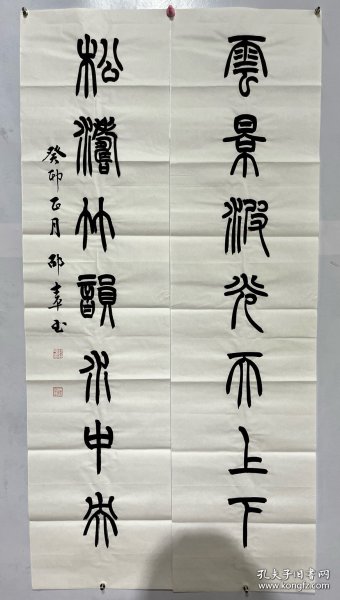 雲景波光天上下
松濤竹韻水中央
癸卯正月 邵章书
孔夫子旧书网
www.kongfz.com